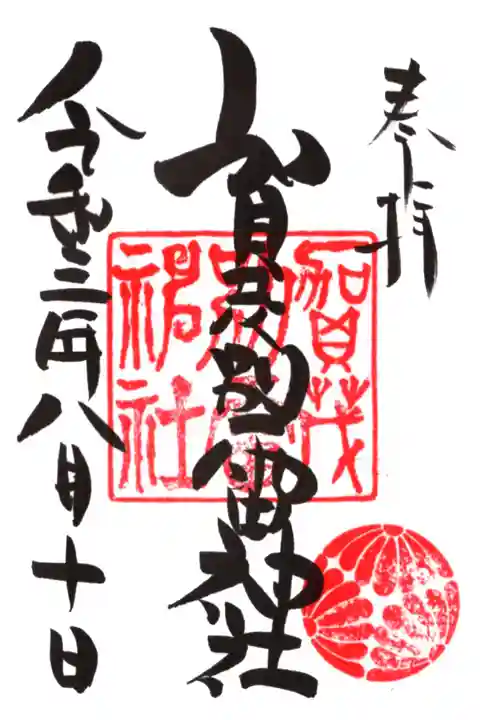 奉拝
賀茂別雷神社
賀茂
別雷
神社
令和三年八月十日